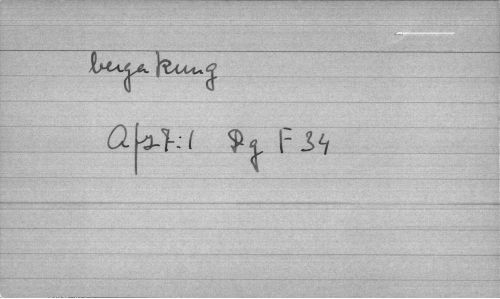 bergakung
Af 27:1 Dg F 34